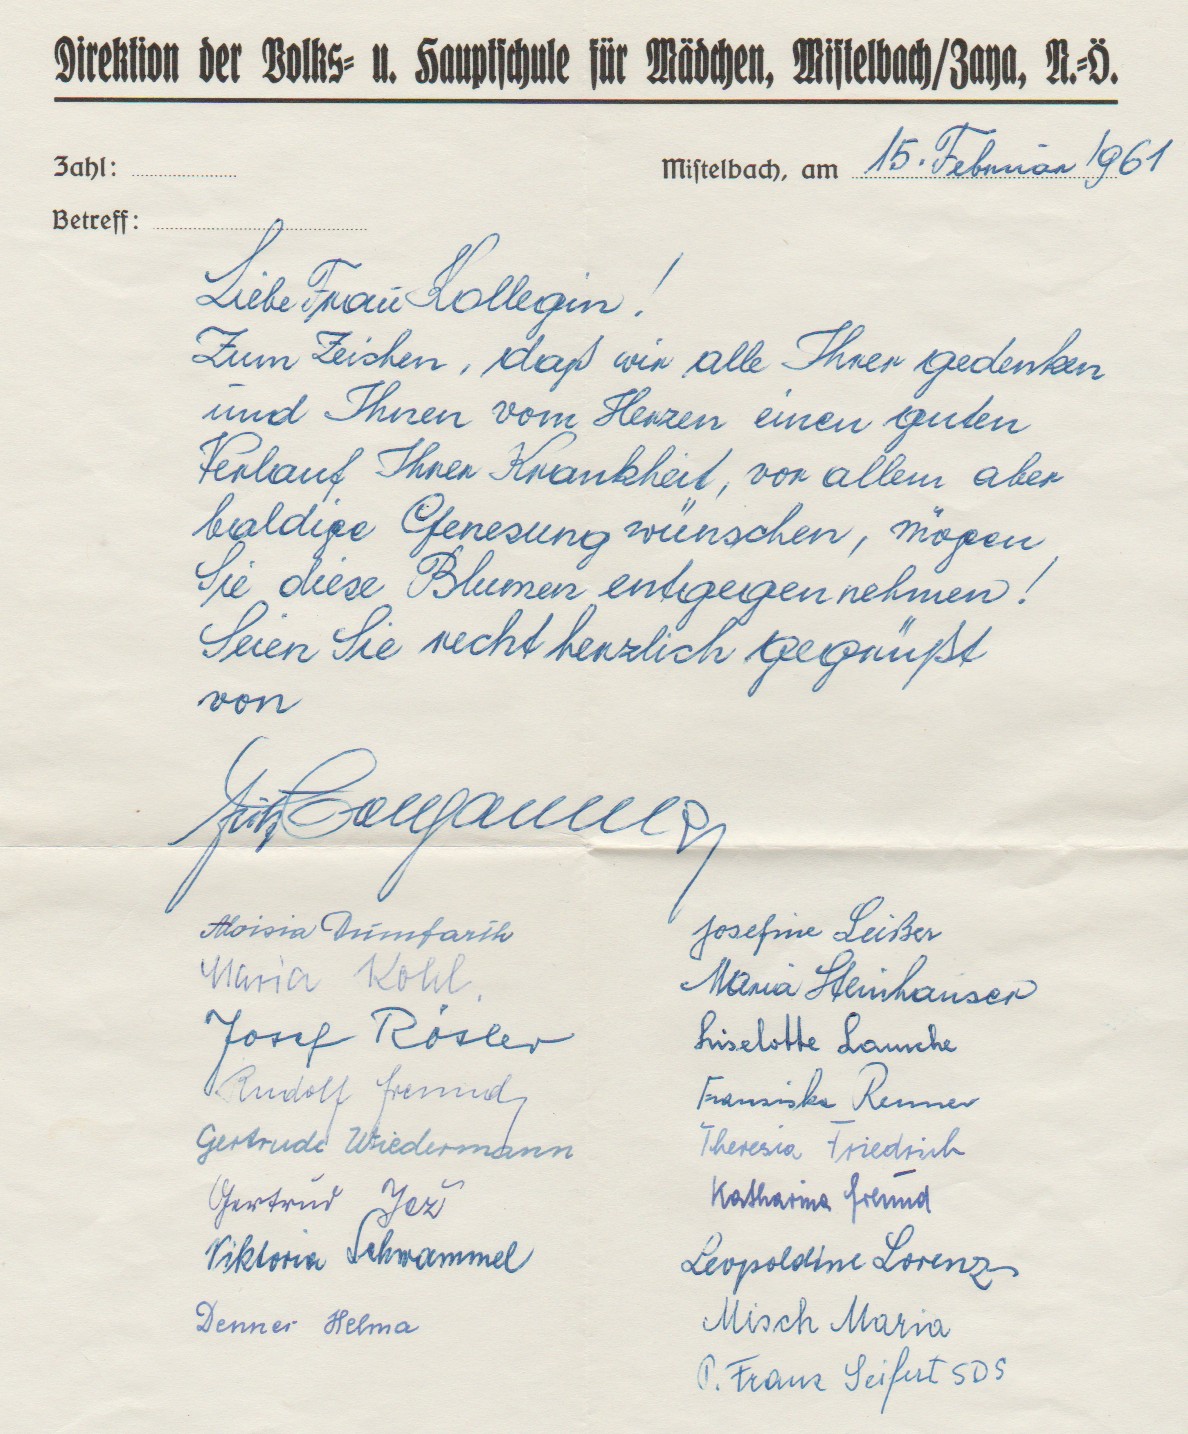 Direktion der Volks- u. Hauptschule für Mädchen, Mistelbach/Zaya, N.-Ö.
Zahl:
Mistelbach, am 15. Februar 1961
Betreff:
Liebe Frau Kollegin!
Zum Zeichen, daß wir alle Ihrer gedenken
und Ihnen vom Herzen einen guten
Verlauf Ihrer Krankheit, vor allem aber
baldige Genesung wünschen, mögen
Sie diese Blumen entgegennehmen!
Seien Sie recht herzlich gegrüßt
von
Fritz
Aloisia Dumfarth
Maria Kohl.
Josef Rösler
Rudolf Freund
Gertrude Wiedermann
Gertrud Jež
Viktoria Schwammel
Denner Helma
Josefine Leißer
Maria Steinhauser
Liselotte Lausche
Franziska Renner
Theresia Friedrich
Katharina Freund
Leopoldine Lorenz
Misch Maria
P. Franz Seifert SDS